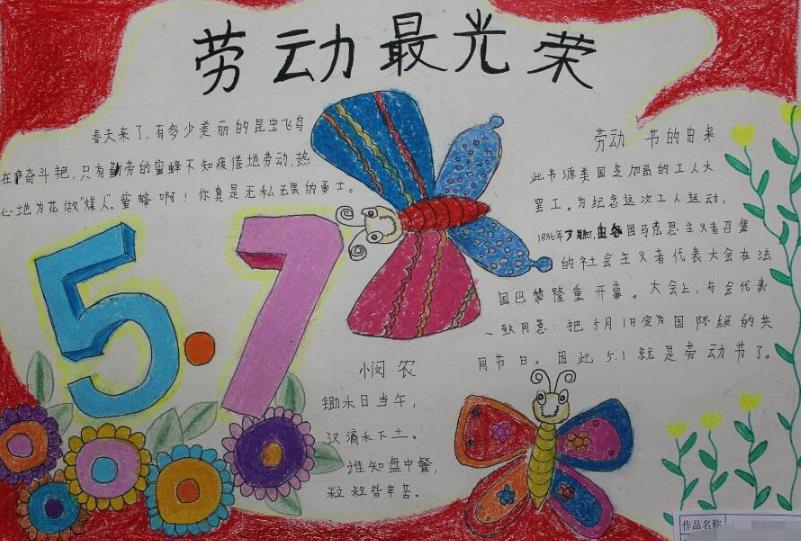 劳动最光荣
春天来了,有多少美丽的昆虫飞鸟
在奋斗耙,只有勤劳的蜜蜂不知疲倦地劳动,热
心地为花做"媒人".蜜蜂啊!你真是无私无畏的勇士。
5.1
劳动 节的由来
此节源美国芝加哥的工人大
罢工。为纪念这次工人运动,
1886年 国马克思主义者召集
的社会主义者代表大会在法
国巴黎隆重开幕。大会上,与会代表
一致同意:把5月1日定为国际级的共
同节日。因此5.1就是劳动节了。
悯农
锄禾日当午,
汉滴禾下土。
谁知盘中餐,
粒粒皆辛苦。
作品名称